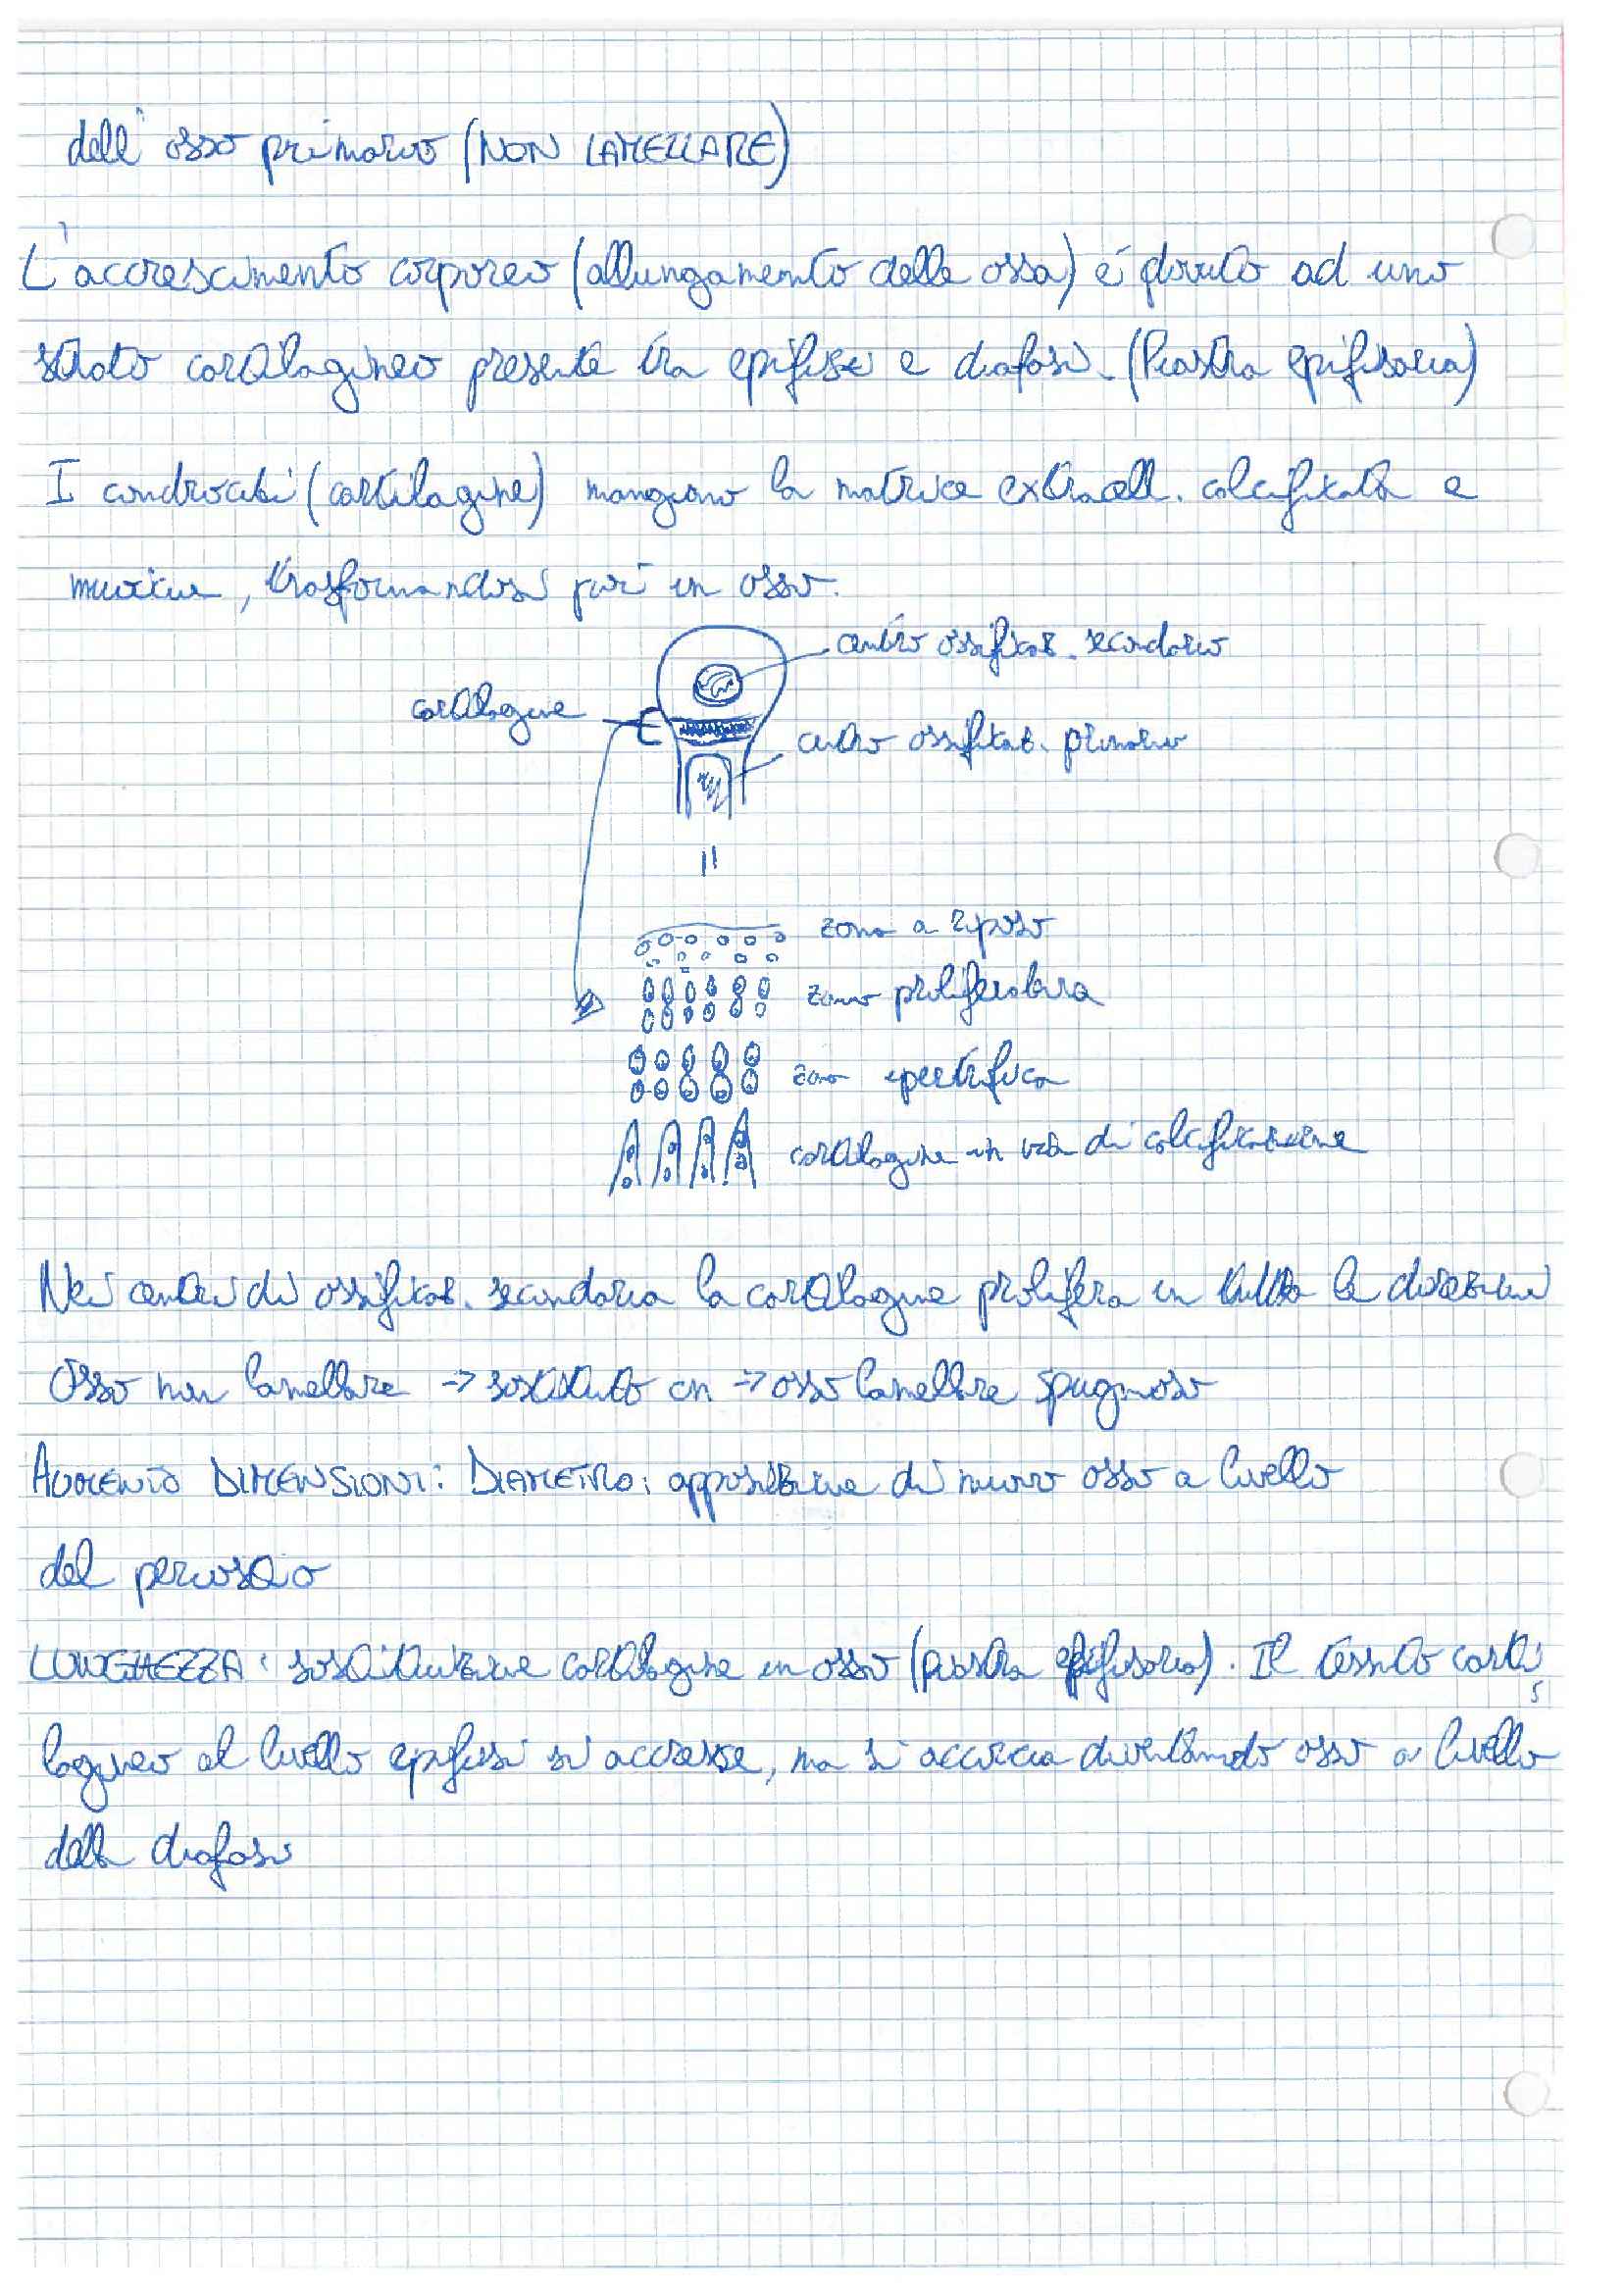 dell'osso primario (NON LAMELLARE)
L'accrescimento corporeo (allungamento delle ossa) è dovuto ad uno
strato cartilagineo presente tra epifisi e diafisi. (Piastra epifisaria)
I condrociti (cartilagine) mangiano la matrice extracell. calcificata e
muoiono, trasformandosi poi in osso.
centro ossificaz. secondario
cartilagine
centro ossificaz. primario
zona a riposo
zona proliferativa
zona ipertrofica
cartilagine in via di calcificazione
Nei centri di ossificaz. secondaria la cartilagine prolifera in tutte le direzioni
Osso non lamellare -> sostituito in -> osso lamellare spugnoso
AUMENTO DIMENSIONI: DIAMETRO: apposizione di nuovo osso a livello
del periostio
LUNGHEZZA: sostituzione cartilagine in osso (piastra epifisaria). Il tessuto carti
lagineo al livello epifisi si accresce, ma si accorcia diventando osso a livello
della diafisi